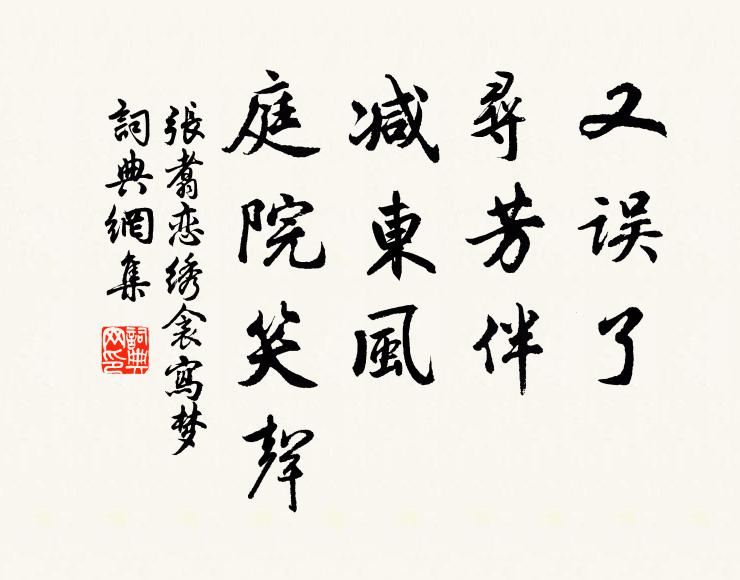 又误了
尋芳伴
减東風
庭院笑聲
張翥恋绣衾寫梦
詞典網集
詞典网印